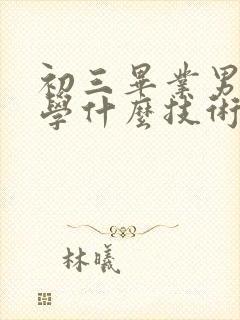 初三畢業男
學什麼技術
林曦